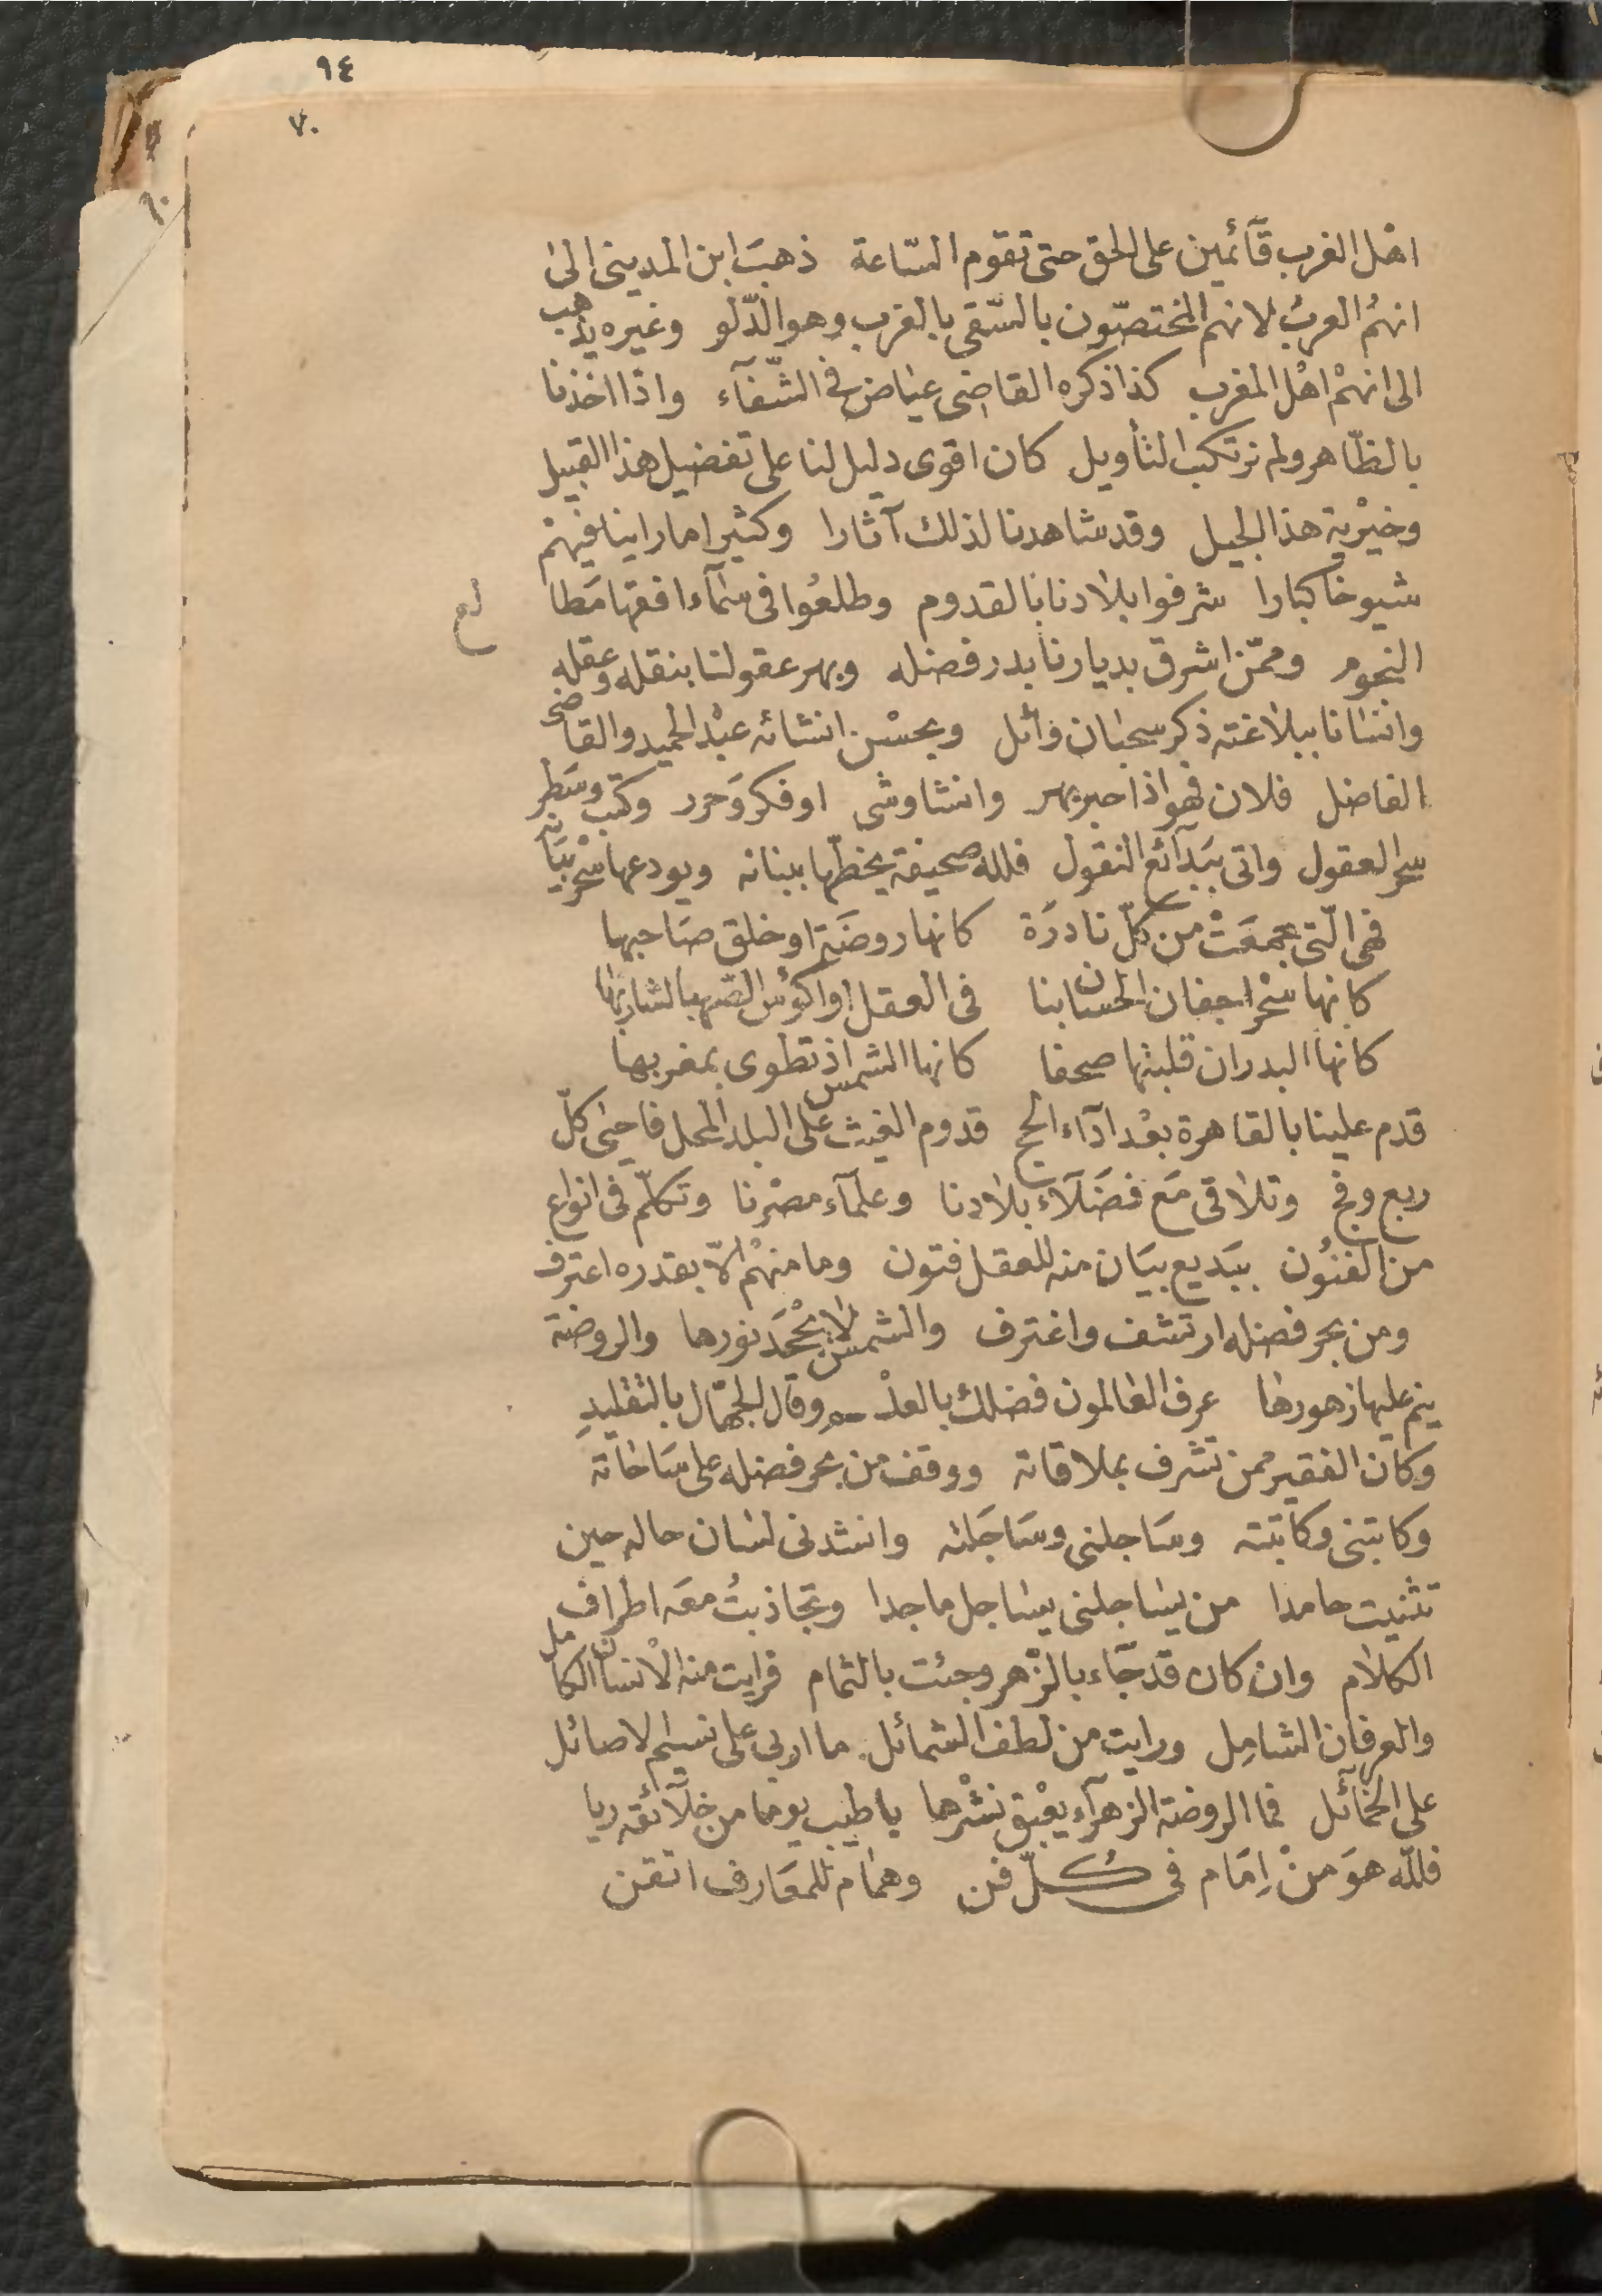 ٩٤
٧٠
٦٠
اهْل الغرب قآئمين على الحق حتى تقوم السّاعة ذهبَ ابن المدينى الى
انهمُ العربُ لانهم المختصّون بالسّقى بالغرب وهو الدّلو وغيره يذهب
الى انهمْ اهْل المغرب كذا ذكره القاضى عياض فى الشّفآء واذا اخذنا
بالظّاهر ولم نرتكب التأويل كان اقوى دليل لنا على تفضيل هذا القبيل
وخيْرية هذا الجيل وقد شاهدنا لذلك آثارا وكثيرا ما راينا فيهمْ
شيوخا كبارا شرفوا بلادنا بالقدوم وطلعُوا فى سمآء افقها مَطا
لع
النجوم وممّن اشرق بديارنا بدر فضله وبهر عقولنا بنقله وعقله
وانسانا ببلاغته ذكر سحبان وآئل وبحسْن انشائه عبْد الحميد والقاضى
الفاضل فلان فهو اذا حبر بهر وانشا وشى او فكر وَحرر وكتب وسَطر
سحر العقول واتى ببَدآئع النقول فلله صحيفة يخطّها ببنانه ويودعها سحْر بيَانه
فهى الّتى جمعَتْ من كلّ نادرَة كانها روضَة او خلق صَاحبها
كانها سحْر اجفان الحسان بنا فى العقل او اكؤس الصّهبا لشاربها
كانها البدر ان قلبتها صحفا كانها الشمس اذ تطوى بمغربها
قدم علينا بالقاهرة بعْد ادآء الحج قدوم الغيث على البلد المحل فاحيى كلّ
ربع وفج وتلاقى مَع فضَلآء بلادنا وعلمآء مصْرنا وتكلّم فى انواع
من الفنُون ببَديع بيَان منه للعقل فتون وما منهمْ الاّ بقدره اعترف
ومن بحر فضله ارتشف واغترف والشمسُ لا يجْحَد نورها والروضة
ينم عليها زهورها عرف العالمون فضلك بالعلْـم وقال الجهّال بالتقليدِ
وكان الفقير ممن تشرف بملاقاته ووقف من بحر فضله على سَاحاته
وكاتبنى وكاتبته وسَاجلنى وسَاجَلته وانشدنى لسَان حاله حين
تثنيت حامدا من يسَاجلنى يسَاجل ماجدا وتجاذبتُ معَه اطراف
الكلام وان كان قد جآء بالزّهر وجئت بالثمام فرايت منه الْانسان الكامل
والعرفان الشامِل ورايت من لطف الشمائل ما اربى على نسيم الاصائل
على الخمآئل فما الروضة الزهرآء يعْبق نشْرها باطيب يوما من خلآئقه ريا
فللّه هوَ منْ اِمَام فى كُلّ فن وهمَام للمعَارف اتقن